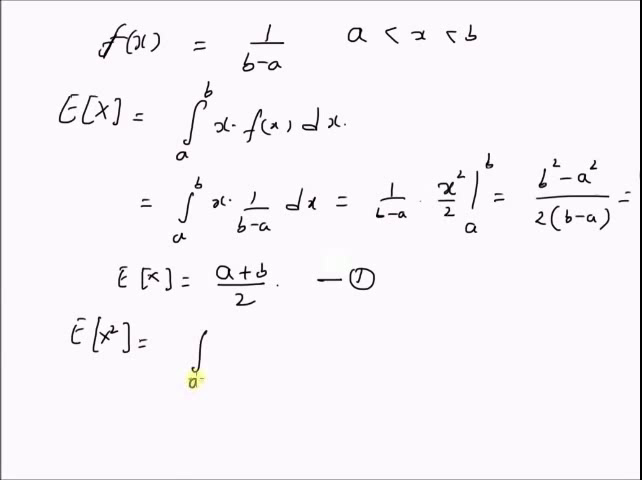 f(x) = 1/(b-a)   a < x < b
E[X] = ∫_a^b x· f(x) dx.
= ∫_a^b x· 1/(b-a) dx = 1/(b-a) · x²/2 |_a^b = (b² - a²)/(2(b-a)) =
E[x] = (a+b)/2 . — ①
E[x²] = ∫_a